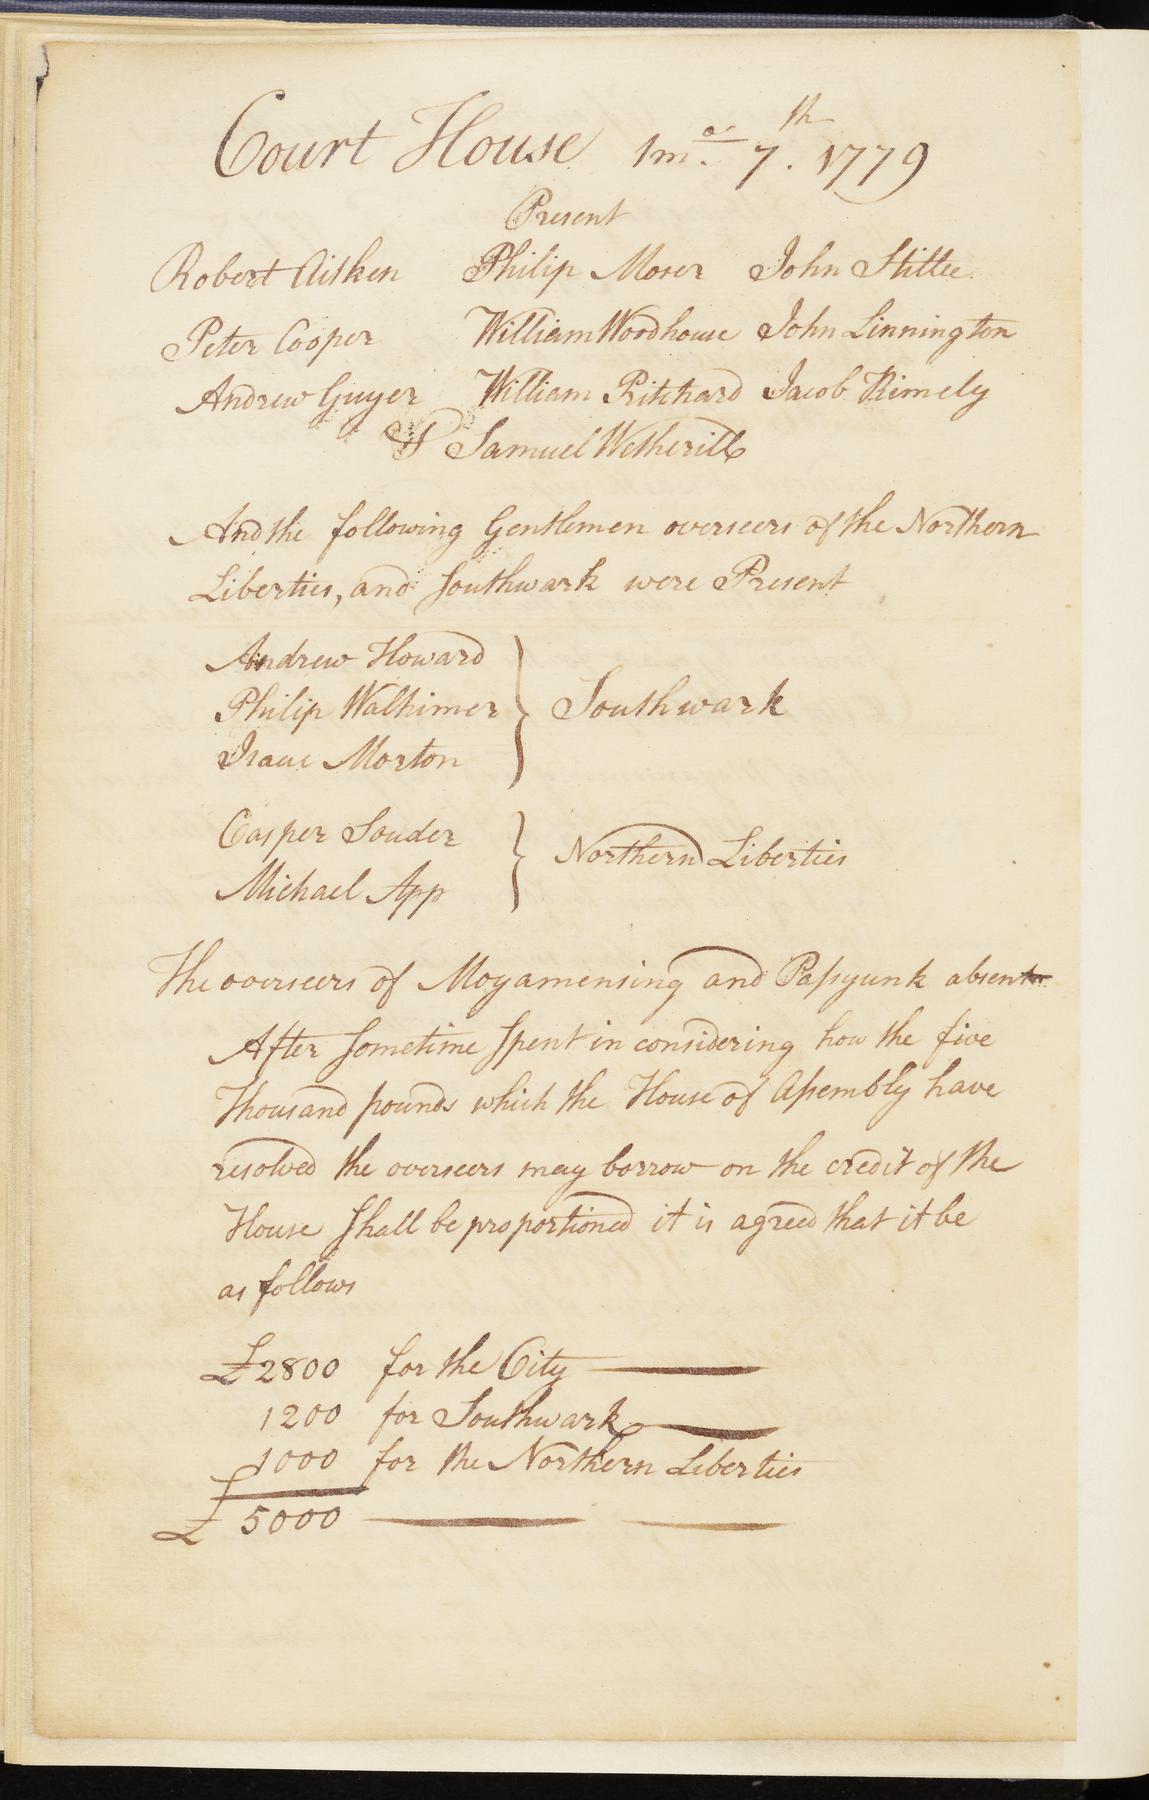 Court House 1mo. 7th. 1779
Present
Robert Aitken Philip Moser John Stillee
Peter Cooper William Woodhouse John Linnington
Andrew Guyer William Pritchard Jacob Rimely
& Samuel Wetherill
And the following Gentlemen overseers of the Northern
Liberties, and Southwark were Present
Andrew Howard
Philip Walhimer } Southwark
Isaac Morton
Casper Souder } Northern Liberties
Michael App
The overseers of Moyamensing and Passyunk absent
After sometime spent in considering how the five
Thousand pounds which the House of Assembly have
resolved the overseers may borrow on the credit of the
House shall be proportioned it is agreed that it be
as follows
£2800 for the City
1200 for Southwark
1000 for the Northern Liberties
£ 5000